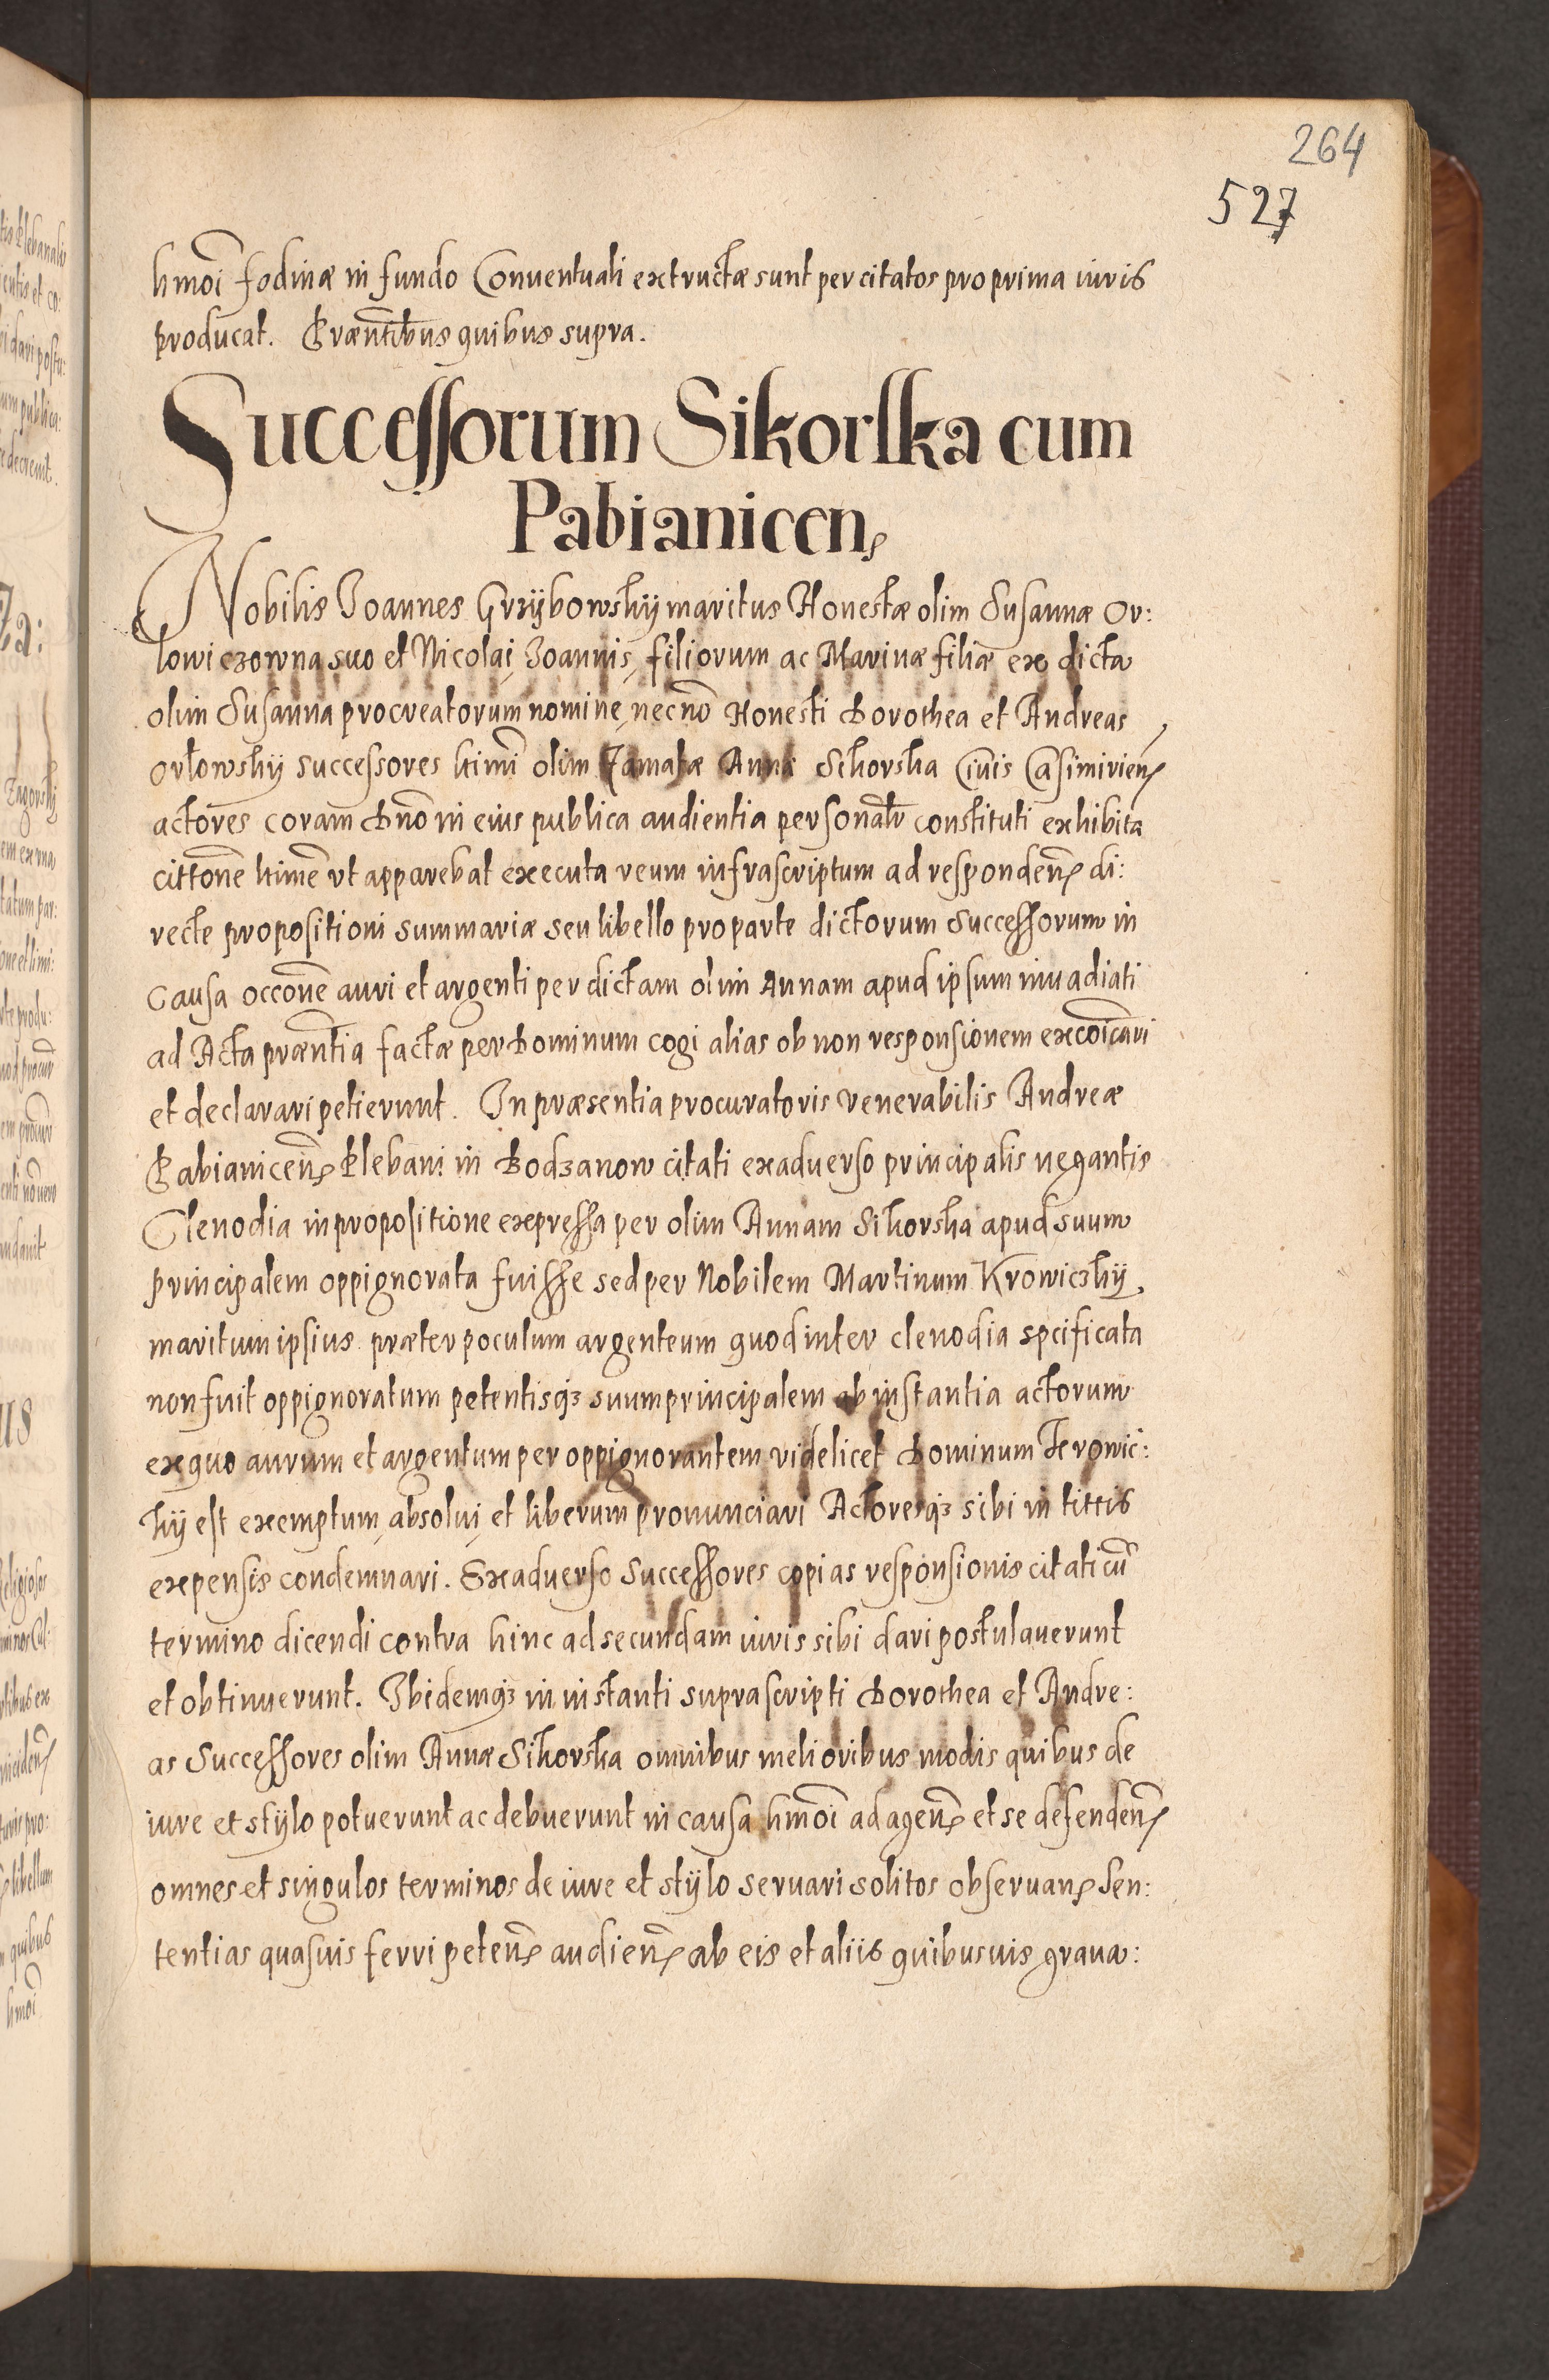 264
527
hmoi fodinæ in fundo Conuentuali extructæ sunt per citatos pro prima iuris
producat. Præntibus quibus supra.
Successorum Sikorska cum
Pabianicen
Nobilis Joannes Grzÿbowskÿ maritus Honestæ olim Susannæ Or:
lowiczowna suo et Nicolai, Joannis, filiorum ac Marinæ filiæ ex dicta
olim Susanna procreatorum nomine, necno Honesti Dorothea et Andreas
Orłowskÿ successores ltimi olim Famatæ Annæ Sikorska Ciuis Casimirien
actores coram Dno in eius publica audientia personalr constituti exhibita
cittone ltime vt apparebat executa reum infrascriptum ad responden di:
recte propositioni summariæ seu libello pro parte dictorum Successorum in
Causa occone auri et argenti per dictam olim Annam apud ipsum inuadiati
ad Acta præntia factæ per Dominum cogi alias ob non responsionem excoicari
et declarari petierunt. In præsentia procuratoris Venerabilis Andreæ
Pabianicen Plebani in Bodzanow citati exaduerso principalis negantis
Clenodia in propositione expressa per olim Annam Sikorska apud suum
principalem oppignorata fuisse sed per Nobilem Martinum Krowiczkÿ,
maritum ipsius præter poculum argenteum quod inter clenodia spcificata
non fuit oppignoratum petentisqz suum principalem ab instantia actorum
ex quo aurum et argentum per oppignorantem videlicet Dominum Krowic:
kÿ est exemptum, absolui, et liberum pronunciari Actoresqz sibi in littis
expensis condemnari. Exaduerso Successores copias responsionis citati cu
termino dicendi contra hinc ad secundam iuris sibi dari postulauerunt
et obtinuerunt. Ibidemqz in instanti suprascripti Dorothea et Andre:
as Successores olim Annæ Sikorska omnibus melioribus modis quibus de
iure et stÿlo potuerunt ac debuerunt in causa hmoi ad agen et se defenden
omnes et singulos terminos de iure et stÿlo seruari solitos obseruan Sen:
tentias quasuis ferri peten audien ab eis et aliis quibusuis graua: